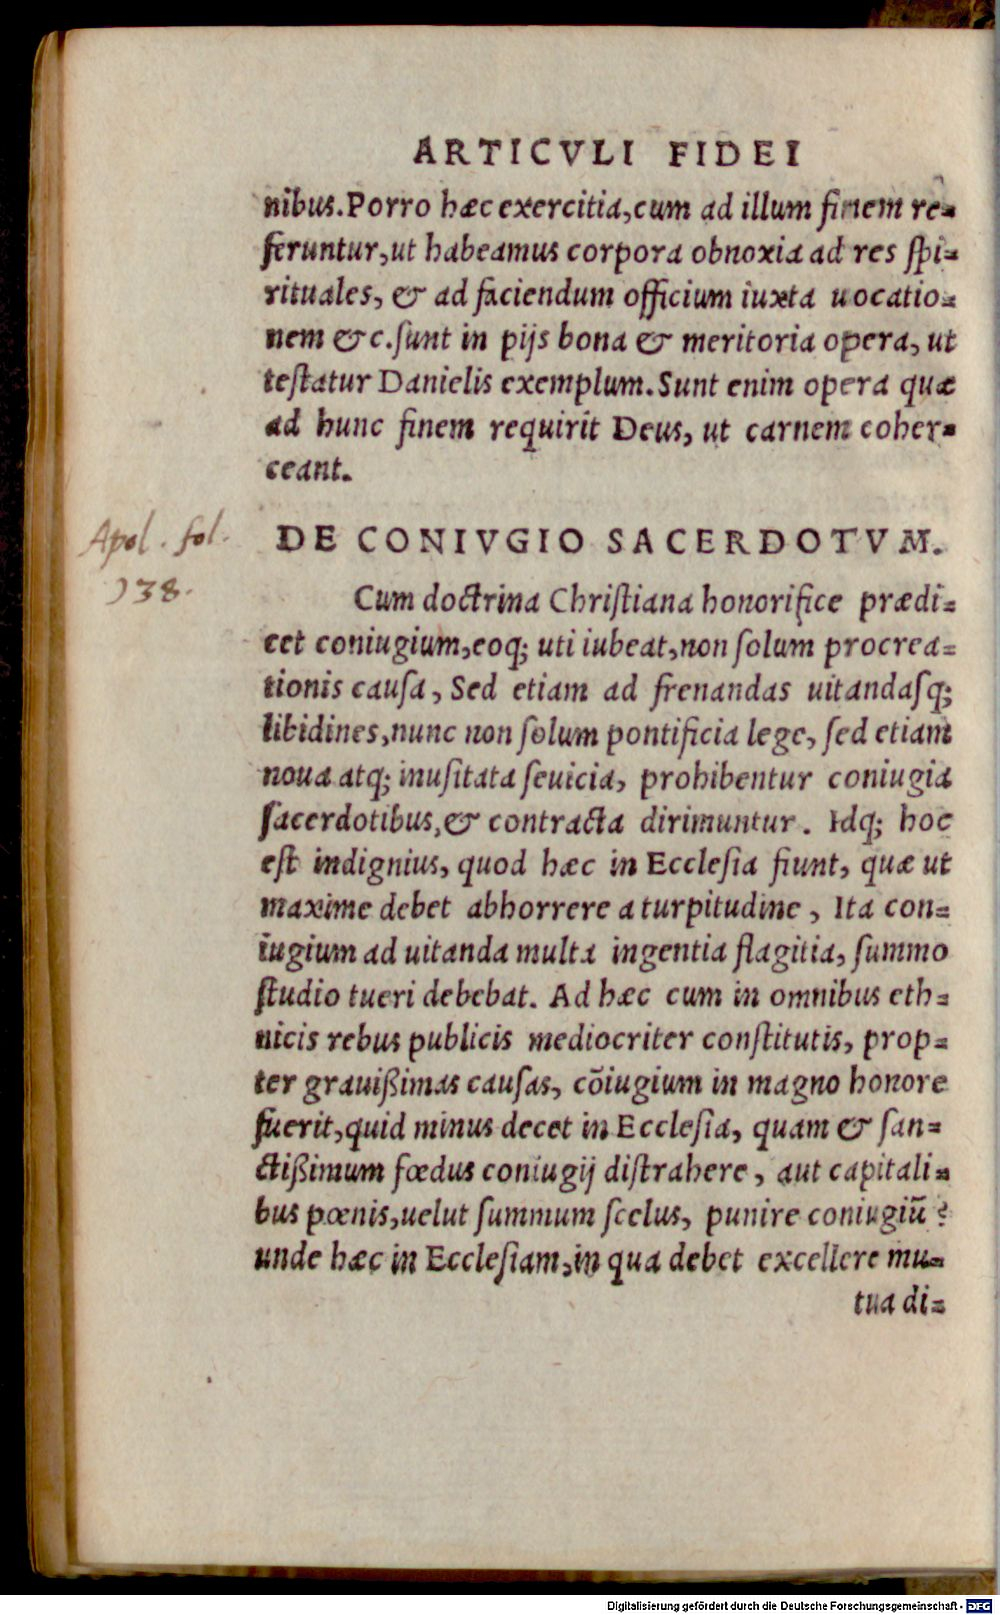 ARTICVLI FIDEI
nibus. Porro hæc exercitia, cum ad illum finem re-
feruntur, ut habeamus corpora obnoxia ad res ſpi-
rituales, & ad faciendum officium iuxta uocatio-
nem &c. ſunt in pijs bona & meritoria opera, ut
teſtatur Danielis exemplum. Sunt enim opera quæ
ad hunc finem requirit Deus, ut carnem coher-
ceant.
Apol. fol.
138.
DE CONIVGIO SACERDOTVM.
Cum doctrina Chriſtiana honorifice prædi-
cet coniugium, eoq; uti iubeat, non ſolum procrea-
tionis cauſa, Sed etiam ad frenandas uitandaſq;
libidines, nunc non ſolum pontificia lege, ſed etiam
noua atq; inuſitata ſeuicia, prohibentur coniugia
ſacerdotibus, & contracta dirimuntur. Idq; hoc
eſt indignius, quod hæc in Eccleſia fiunt, quæ ut
maxime debet abhorrere a turpitudine, Ita con-
iugium ad uitanda multa ingentia flagitia, ſummo
ſtudio tueri debebat. Ad hæc cum in omnibus eth-
nicis rebus publicis mediocriter conſtitutis, prop-
ter grauißimas cauſas, cõiugium in magno honore
fuerit, quid minus decet in Eccleſia, quam & ſan-
ctißimum fœdus coniugij diſtrahere, aut capitali-
bus pœnis, uelut ſummum ſcelus, punire coniugiũ?
unde hæc in Eccleſiam, in qua debet excellere mu-
tua di-
Digitalisierung gefördert durch die Deutsche Forschungsgemeinschaft - DFG